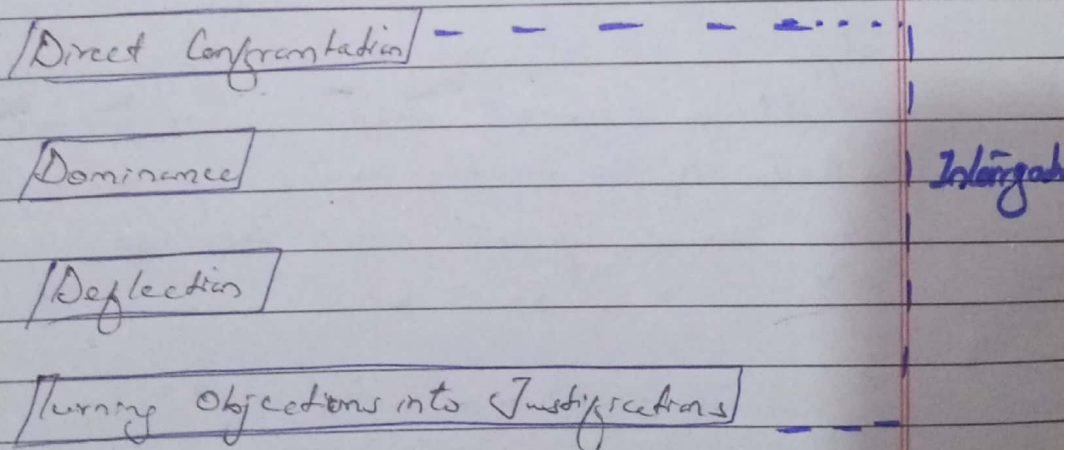 Direct Confrontation
Dominance
Deflection
Turning Objections into Justifications